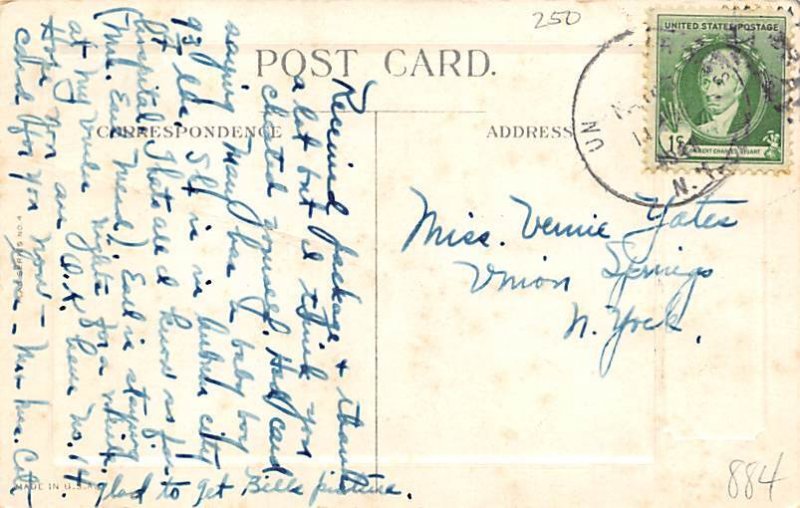 250
UNITED STATES POSTAGE
1¢
GILBERT CHARLES STUART
UN
N.Y.
POST CARD.
CORRESPONDENCE
ADDRESS
Received package & thanks
a lot but I think you
cheated yourself. Had card
saying Mary has a baby boy
9½ lbs. Still is in
city
hospital. Thats all I know so far
(Mrs. Earl Mead) Earl is staying
at my Uncle nights for a while.
Hope you are O.K. have no. 14
card for you now —
Mr & Mrs.
glad to get Bells picture.
Miss. Vernie Yates
Union Springs
N. York.
SERIES NO. 4
MADE IN U.S.A.
884